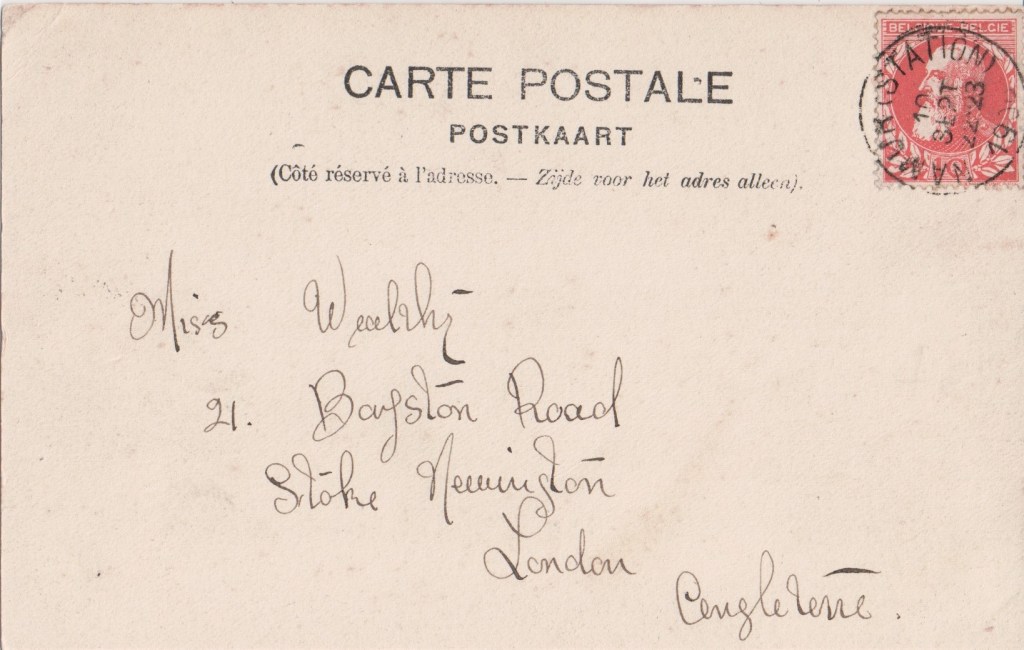 BELGIQUE-BELGIE
NAMUR (STATION)
10
SEPT
22-23
19
CARTE POSTALE
POSTKAART
(Côté réservé à l'adresse. — Zijde voor het adres alleen).
Miss Wealthy
21. Bayston Road
Stoke Newington
London
Angleterre.